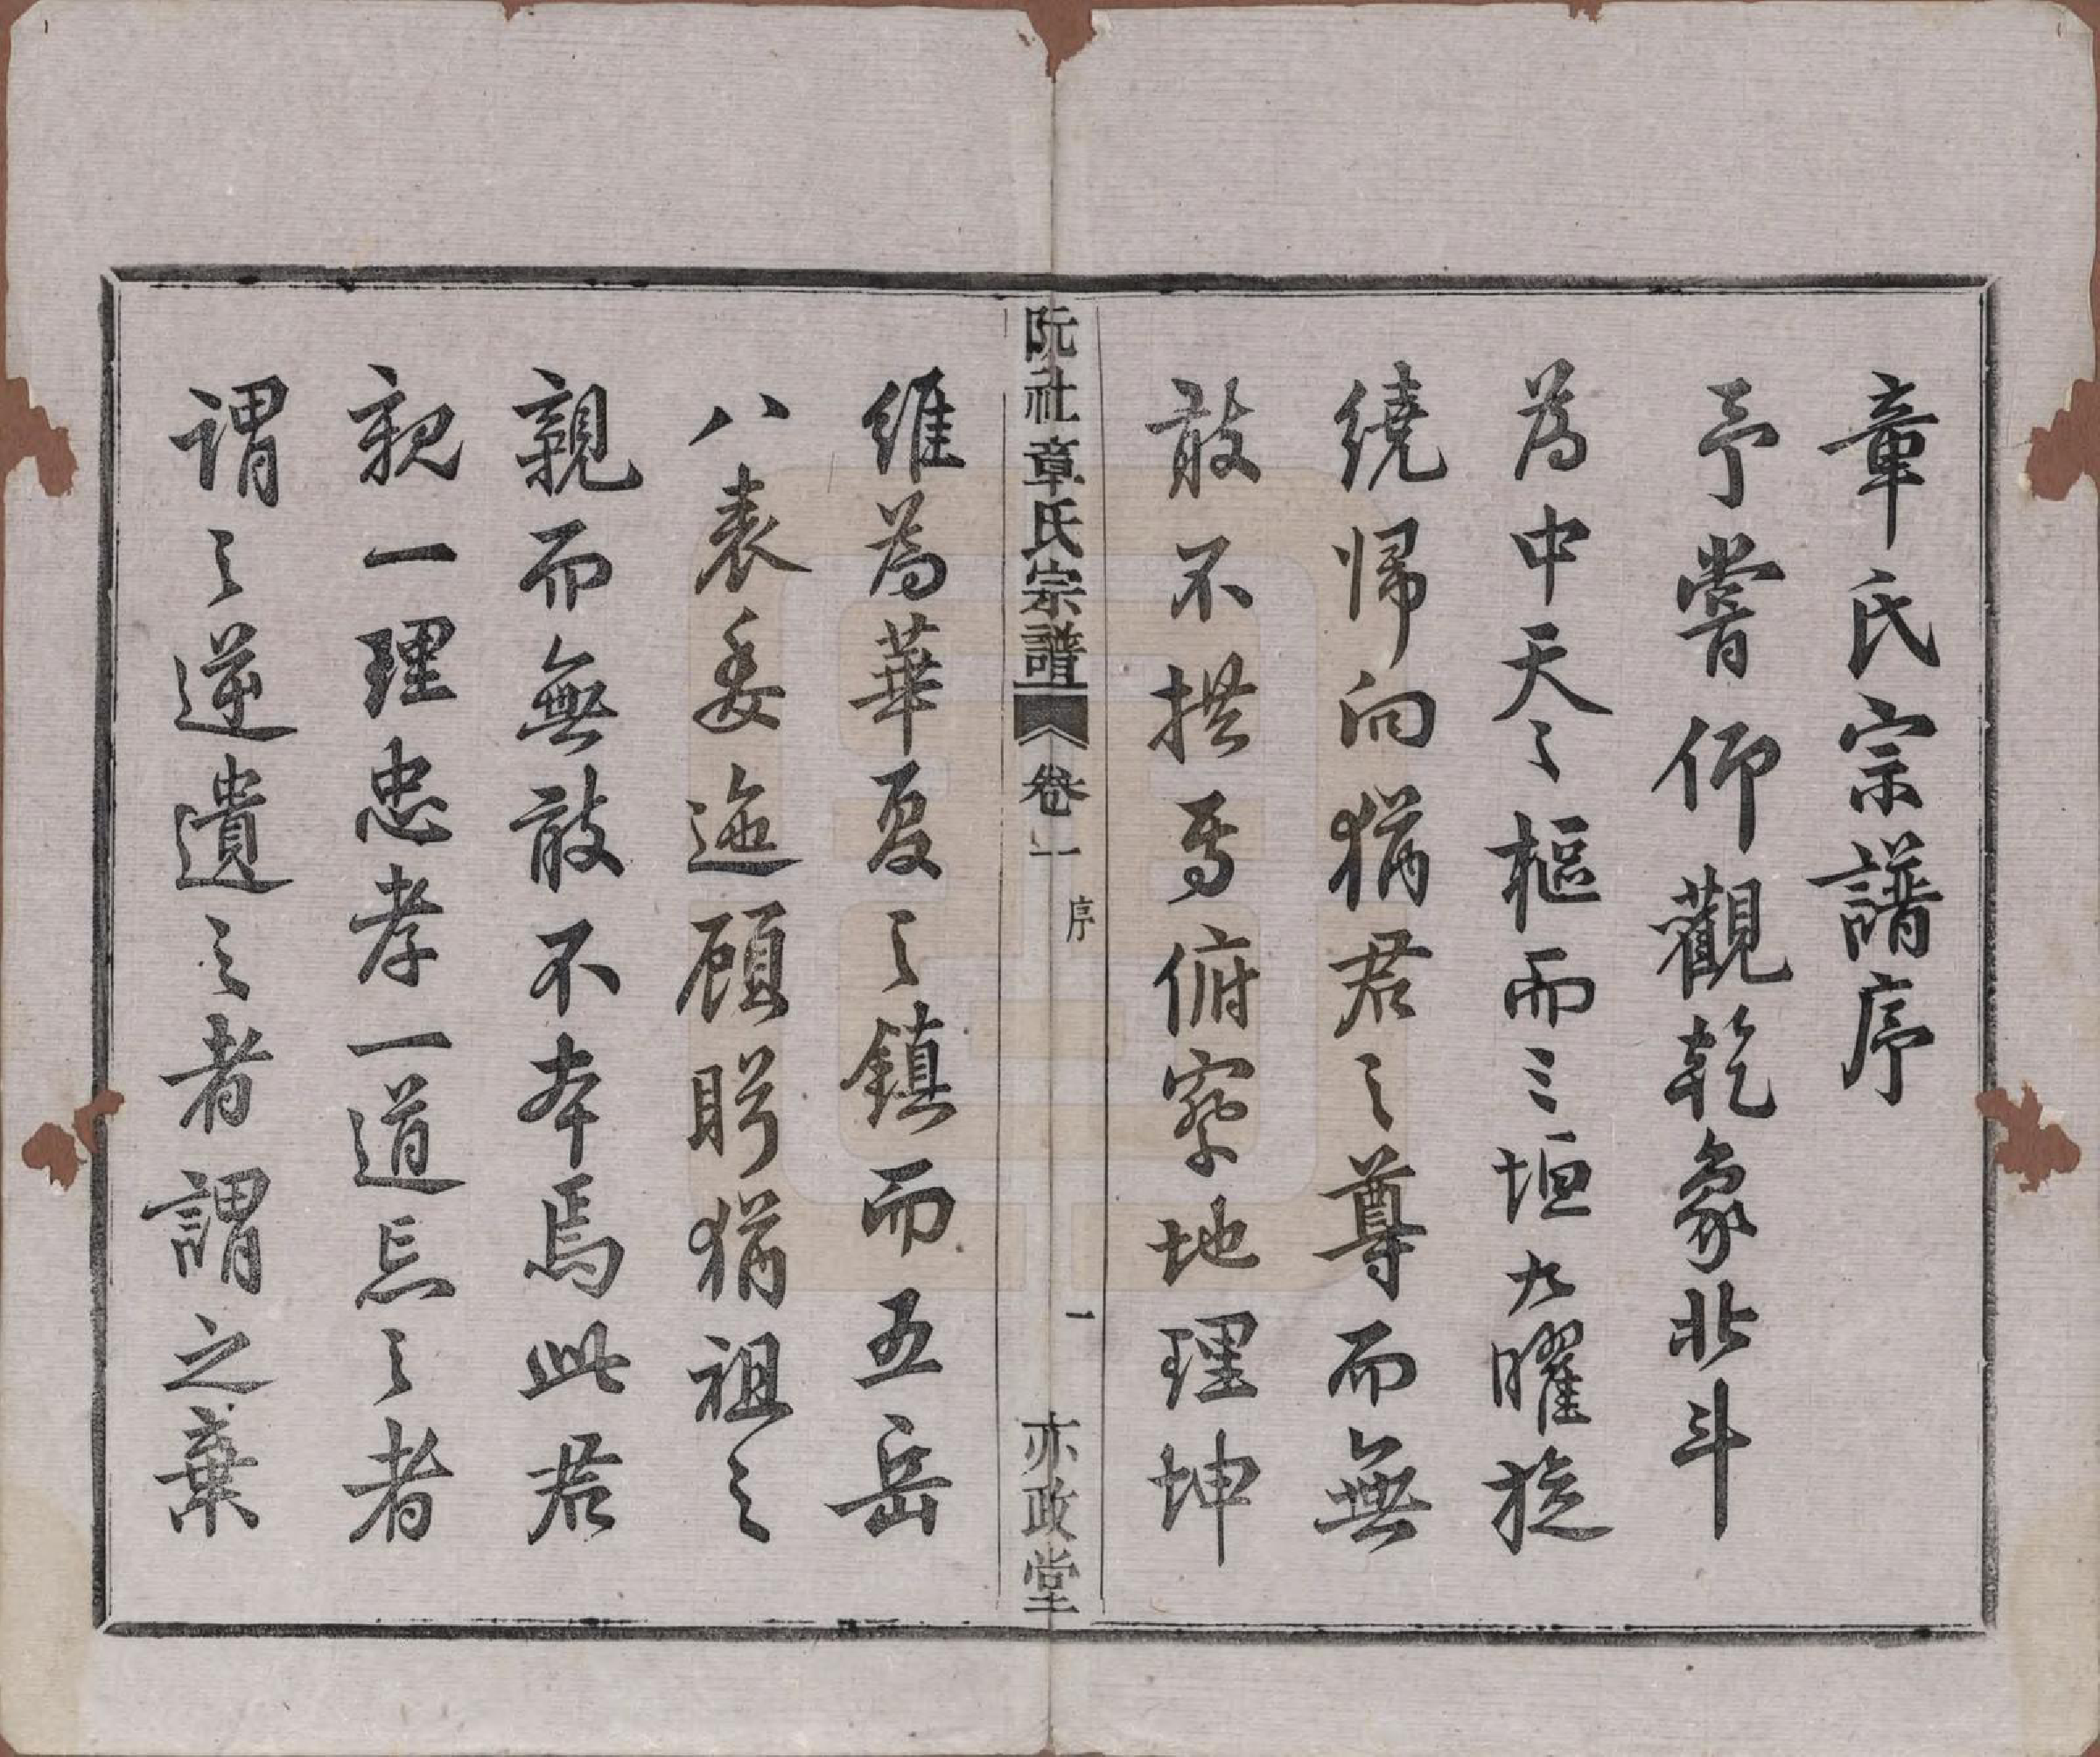 章氏宗譜序
予嘗仰觀乾象北斗
為中天之樞而三垣九曜旋
繞帰向猶君之尊而無
敢不拱焉俯察地理坤
阮社章氏宗譜 卷一 序 一 亦政堂
維為華夏之鎮而五岳
八表委迤顧盻猶祖之
親而無敢不本焉此君
親一理忠孝一道忘之者
謂之逆遺之者謂之棄